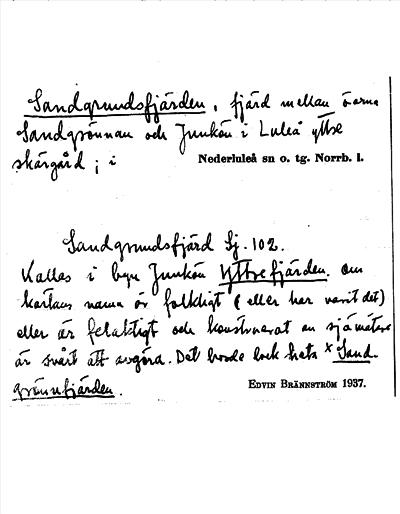 Sandgrundsfjärden, fjärd mellan öarna
Sandgrönnan och Junkön i Luleå yttre
skärgård; i
Nederluleå sn o. tg. Norrb. l.
Sandgrundsfjärd Sj. 102.
Kallas i byn Junkön Yttrefjärden. Om
kartans namn är folkligt (eller har varit det)
eller är felaktigt och konstruerat av sjömätare
är svårt att avgöra. Det borde dock heta × Sand-
grönnfjärden.
EDVIN BRÄNNSTRÖM 1937.